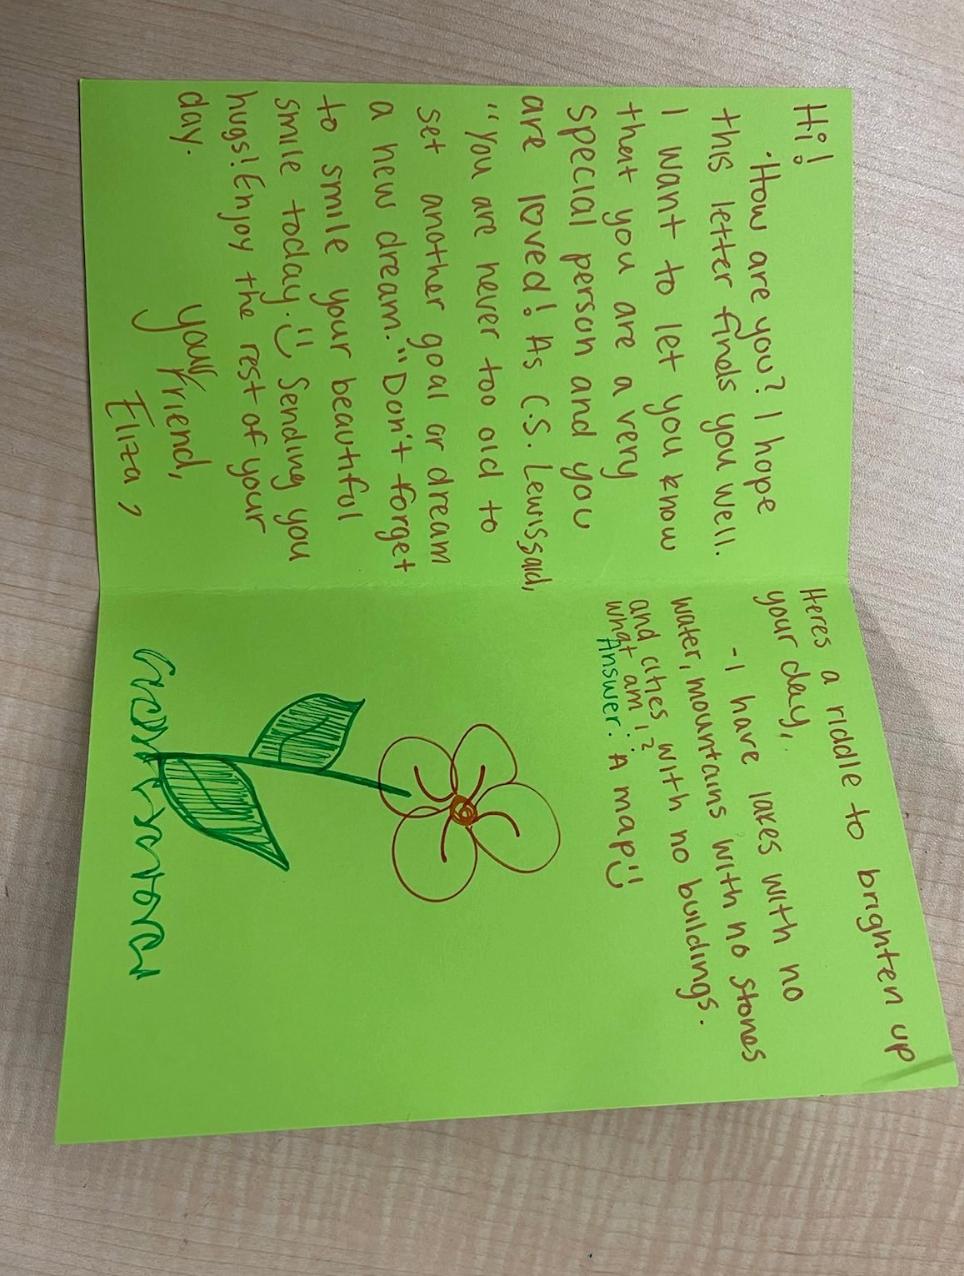 Hi!
How are you? I hope
this letter finds you well.
I want to let you know
that you are a very
special person and you
are loved! As C.S. Lewis said,
"You are never too old to
set another goal or dream
a new dream." Don't forget
to smile your beautiful
smile today. :) Sending you
hugs! Enjoy the rest of your
day.
your friend,
Eliza,
Heres a riddle to brighten up
your day,
-I have lakes with no
water, mountains with no stones
and cities with no buildings.
what am i?
Answer: A map :)